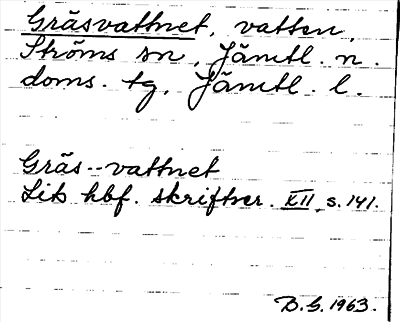 Gräsvattnet, vatten,
Ströms sn, Jämtl. n.
doms. tg, Jämtl. l.
Gräs--vattnet
Lits hbf. skrifter. XII, s. 141.
D.G. 1963.